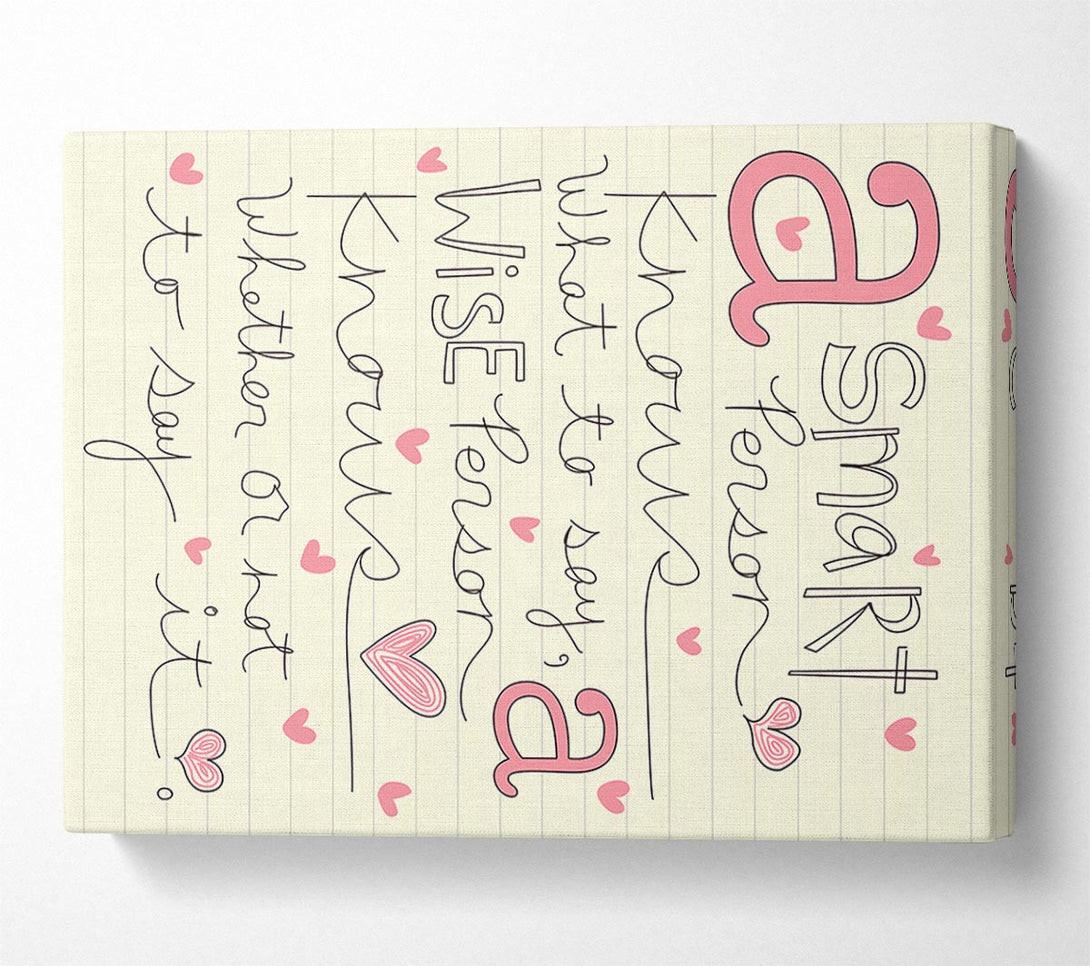 a smaRt
person
knows
what to say, a
WiSE person
knows
whether or not
to say it.